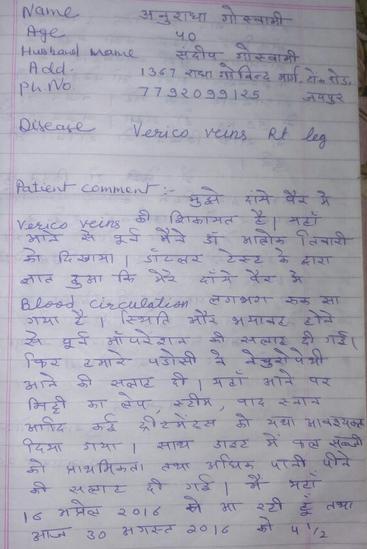 Name अनुराधा गोस्वामी
Age 40
Husband name संदीप गोस्वामी
Add. 1367 राधा गोविन्द मार्ग, टोंक रोड,
Ph. No 7792099125 जयपुर
Disease Verico veins Rt leg
Patient comment :- मुझे दांये पैर मे
Verico veins की शिकायत है। यहाँ
आने से पूर्व मैंने डॉ. आलोक तिवारी
को दिखाया। डॉपलर टेस्ट के द्वारा
ज्ञात हुआ कि मेरे दाँये पैर मे
Blood circulation लगभग रूक सा
गया है। स्थिति और भयावह होने
से पूर्व ऑपरेशन की सलाह दी गई।
फिर हमारे पडोसी ने नेचुरोपेथी
आने की सलाह दी। यहाँ आने पर
मिट्टी का लेप, स्टीम, पाद स्नान
आदि कई ट्रीटमेंट्स को यथा आवश्यक
दिया गया। साथ डाइट में फल सब्जी
को प्राथमिकता तथा अधिक पानी पीने
की सलाह दी गई। मैं यहाँ
16 अप्रेल 2016 से आ रही हूँ तथा
आज 30 अगस्त 2016 को 4 1/2